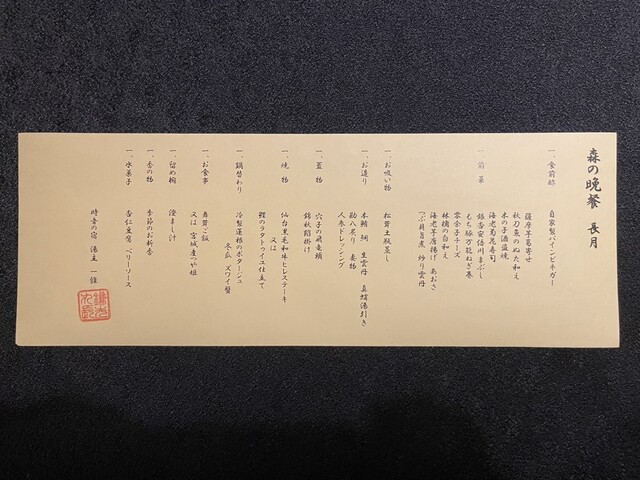 森の晩餐 長月
一、食前酢
自家製パインビネガー
一、前菜
薩摩芋葛寄せ
秋刀魚のぬた和え
木の子酒盗焼
海老菊花寿司
銀杏安倍川まぶし
もち豚万能ねぎ巻
零余子チーズ
林檎の白和え
海老芋唐揚げ あおさ
つぶ貝旨煮 炒り雲丹
一、お吸い物
松茸土瓶蒸し
一、お造り
本鮪 鯛 生雲丹 真蛸湯引き
勘八炙り 妻物
人参ドレッシング
一、蓋物
穴子の飛竜頭
錦秋餡掛け
一、焼物
仙台黒毛和牛ヒレステーキ
又は
鰹のラタトゥイユ仕立て
一、鍋替わり
冷製蓮根のポタージュ
冬瓜 ズワイ蟹
一、お食事
舞茸ご飯
又は 宮城産つや姫
一、留め椀
澄まし汁
一、香の物
季節のお新香
一、水菓子
杏仁豆腐 ベリーソース
時音の宿 湯主 一條